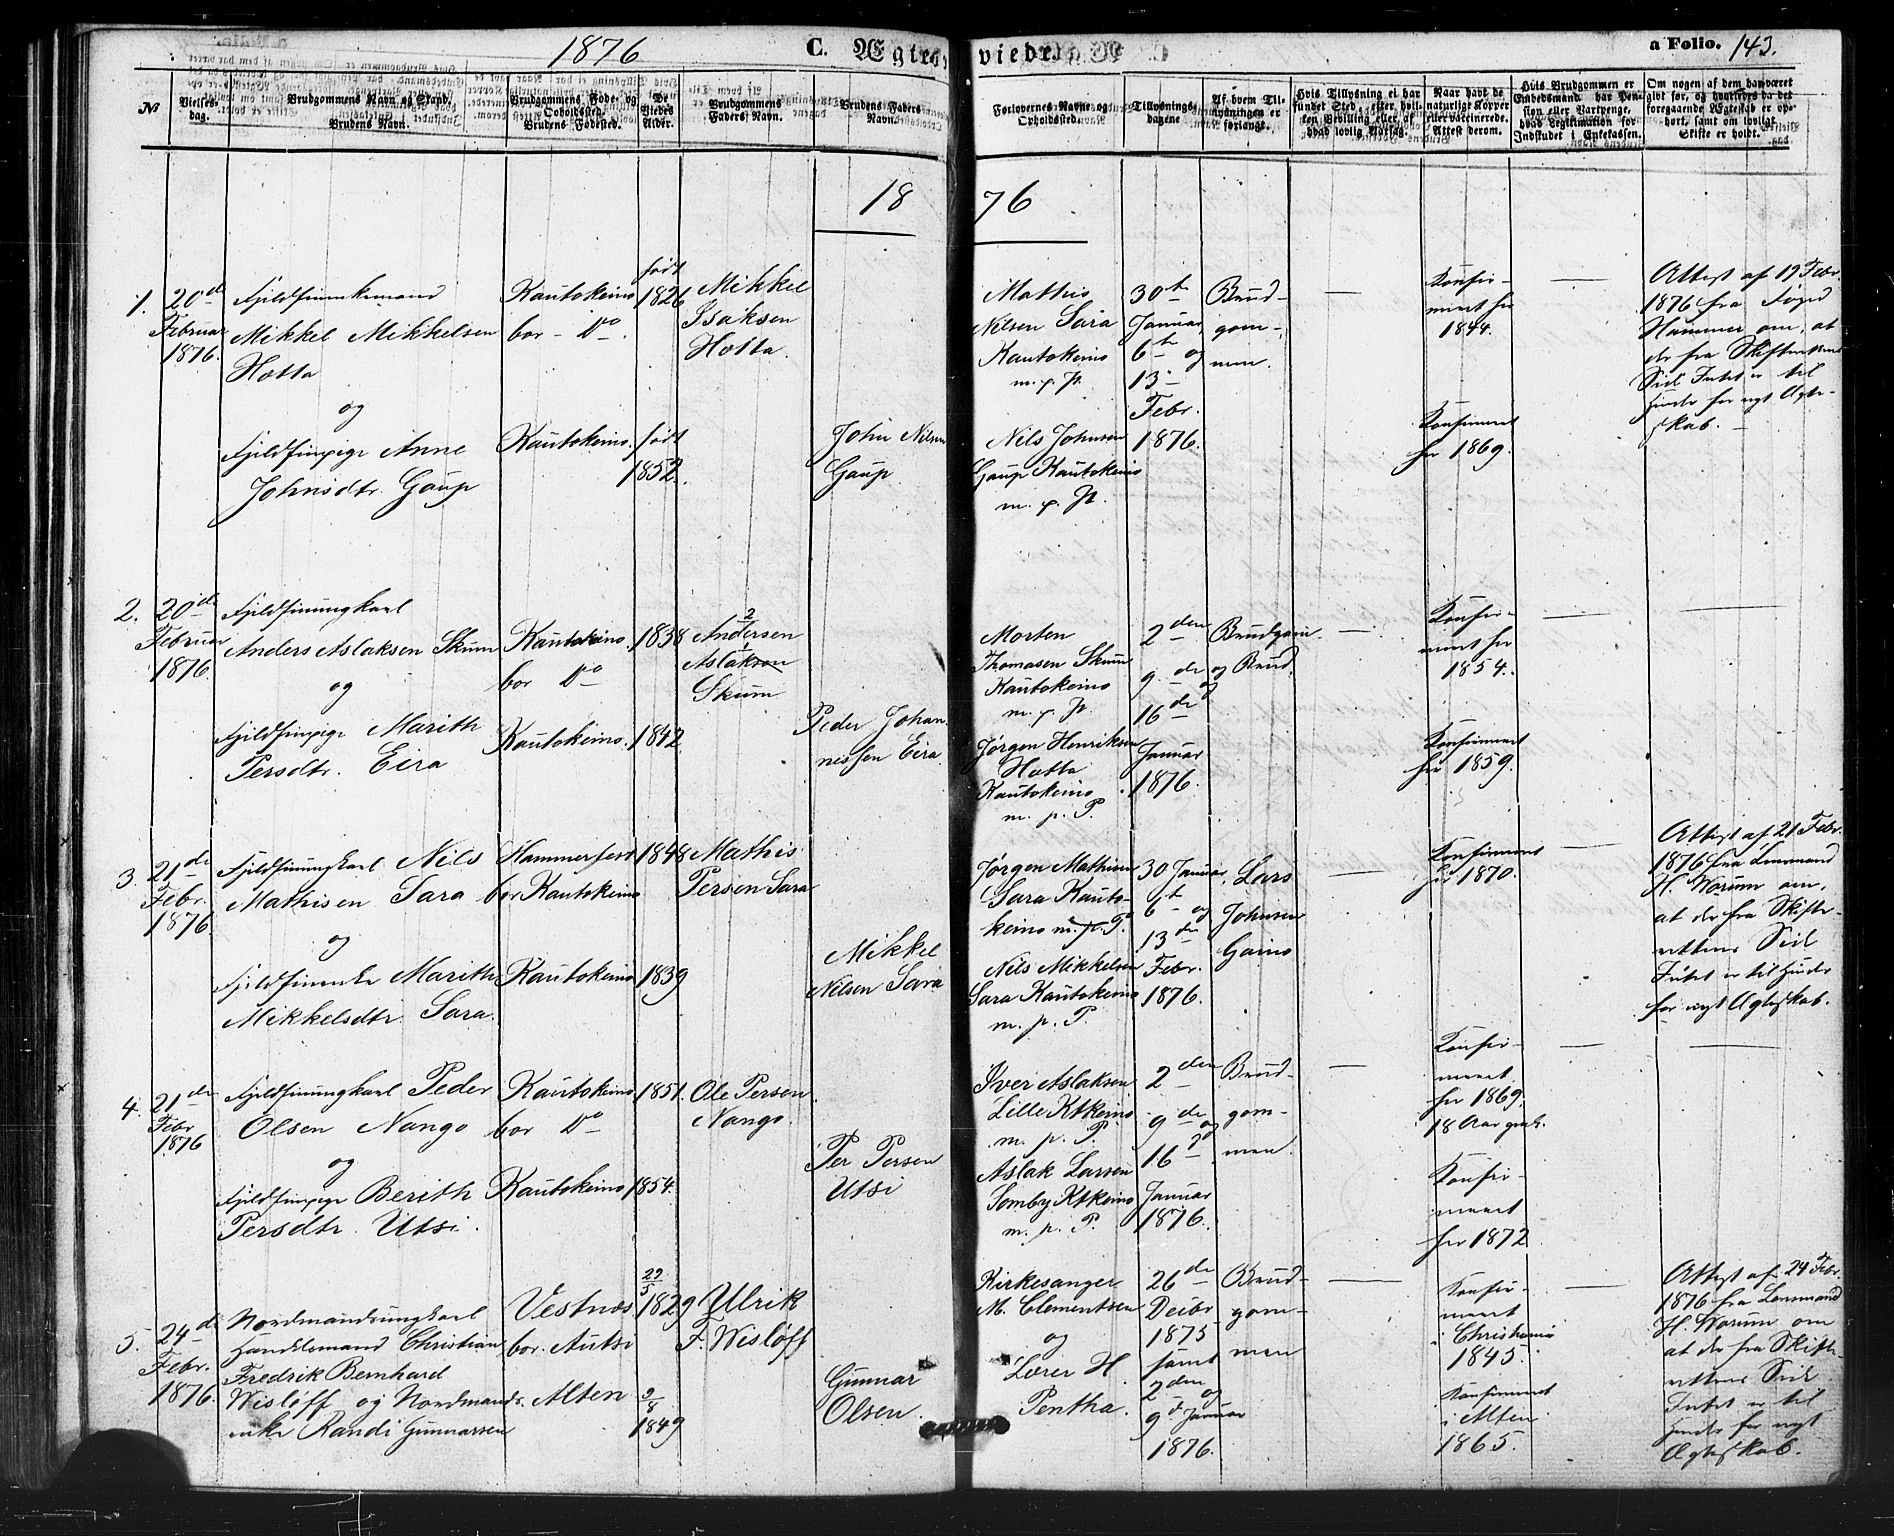 1876
C. Ægteviede.
a Folio. 143.
№
Vielses-
dag.
Brudgommens Navn og Stand.
Brudens Navn.
Brudgommens Føde- og
Opholdssted.
Brudens Fødested.
De
Viedes
Alder.
Brudgommens
Faders Navn.
Brudens Faders
Navn.
Forlovernes Navne og
Opholdssted.
Tillysnings-
dagene
Af hvem Til-
lysningen er
forlangt.
Hvis Tillysning ei har
fundet Sted, efter hvil-
ken Bevilling eller af
hvad lovlig Aarsag.
Naar havt de
naturlige Kopper
eller vaccinerede.
Attest derom.
Hvis Brudgommen er
Enkedsmand, har Pen-
sion eller Vartpenge,
hvad Legitimation for
Indskudet i Enkekassen.
Om nogen af dem har været
gift før, og hvorledes da det
foregaaende Ægteskab er op-
hørt, samt om lovligt
Skifte er holdt.
1876
1.
20de
Februar
1876.
Fjeldfinnenkemand
Mikkel Mikkelsen
Hotta
og
Fjeldfinpige Anne
Johnsdtr. Gaup
Kautokeino
bor - Do.
Kautokeino.
født
1826
født
1852.
Mikkel
Isaksen
Hotta.
John Nilsen
Gaup
Mathis
Nilsen Sara
Kautokeino
m. p. P.
Nils Johnsen
Gaup Kautokeino
m. p. P.
30te
Januar,
6te og
13.
Febr.
1876.
Brud-
gom-
men.
Konfir-
meret her
1844.
Konfirmeret
her 1869.
Attest af 19 Febr.
1876 fra Foged
Hammer om, at
der fra Skifterettens
Side Intet er til
Hinder for nyt Ægte-
skab.
2.
20de
Februar
1876.
Fjeldfinungkarl
Anders Aslaksen Skum
og
Fjeldfinpige Marith
Persdtr. Eira
Kautokeino.
bor Do
Kautokeino.
1838
1842
2
Andersen
1
Aslakson
Skum
Peder Johan-
nessen Eira.
Morten
Thomasen Skum
Kautokeino
m. p. P.
Jørgen Henriksen
Hotta
Kautokeino
m. p. P.
2den
9.de og
16de
Januar
1876.
Brudgom.
og Brud.
Konfir-
meret her
1854.
Konfirmeret
her 1859.
3.
21de
Febr.
1876.
Fjeldfinungkarl Nils
Mathisen Sara
og
Fjeldfinenke Marith
Mikkelsdtr. Sara.
Hammerfest
bor Kautokeino
Kautokeino
1848
1839
Mathis
Persen Sara
Mikkel
Nilsen Sara
Jørgen Mathisen
Sara Kauto-
keino m. p. P.
Nils Mikkelsen
Sara Kautokeino
m. p. P.
30 Januar,
6te og
13de
Febr.
1876.
Lars
Johnsen
Gaino
Konfirmeret
her 1870.
Attest af 21 Febr.
1876 fra Lensmand
H. Worum om,
at der fra Skifte-
rettens Side
Intet er til Hinder
for nyt Ægteskab.
4.
21de
Febr
1876
Fjeldfinungkarl Peder
Olsen Nango
og
Fjeldfinpige Berith
Persdtr. Utsi.
Kautokeino
bor Do
Kautokeino
1851.
1854.
Ole Persen
Nango.
Per Persen
Utsi
Iver Aslaksen
Lille Ktkeino
m. p. P.
Aslak Larsen
Somby Ktkeino
m. p. P.
2den
9de og
16d
Januar
1876.
Brud-
gom-
men.
Konfir-
meret
her 1869,
18 Aar gml.
Konfir-
meret
her 1872
5.
24de
Febr.
1876.
Nordmandsungkarl
Handelsmand Christian
Fredrik Bernhard
Wisløff og Nordmands-
enke Randi Gunnarsen
Vestnæs
bor. Autsi
Alten
29/5
1829
9/8
1849
Ulrik
F. Wisløff
Gunnar
Olsen.
Kirkesanger
M. Clementsen
og
Lærer H.
Pentha.
26de
Decbr
1875
samt
2den og
9d Januar
1876.
Brud-
gom-
men
Konfir-
meret
i Christiania
1845.
Konfirmeret
i Alten
1865.
Attest af 24 Febr.
1876 fra Lensmand
H. Worum om
at der fra Skifte-
rettens Side
Intet er til
Hinder for nyt
Ægteskab.